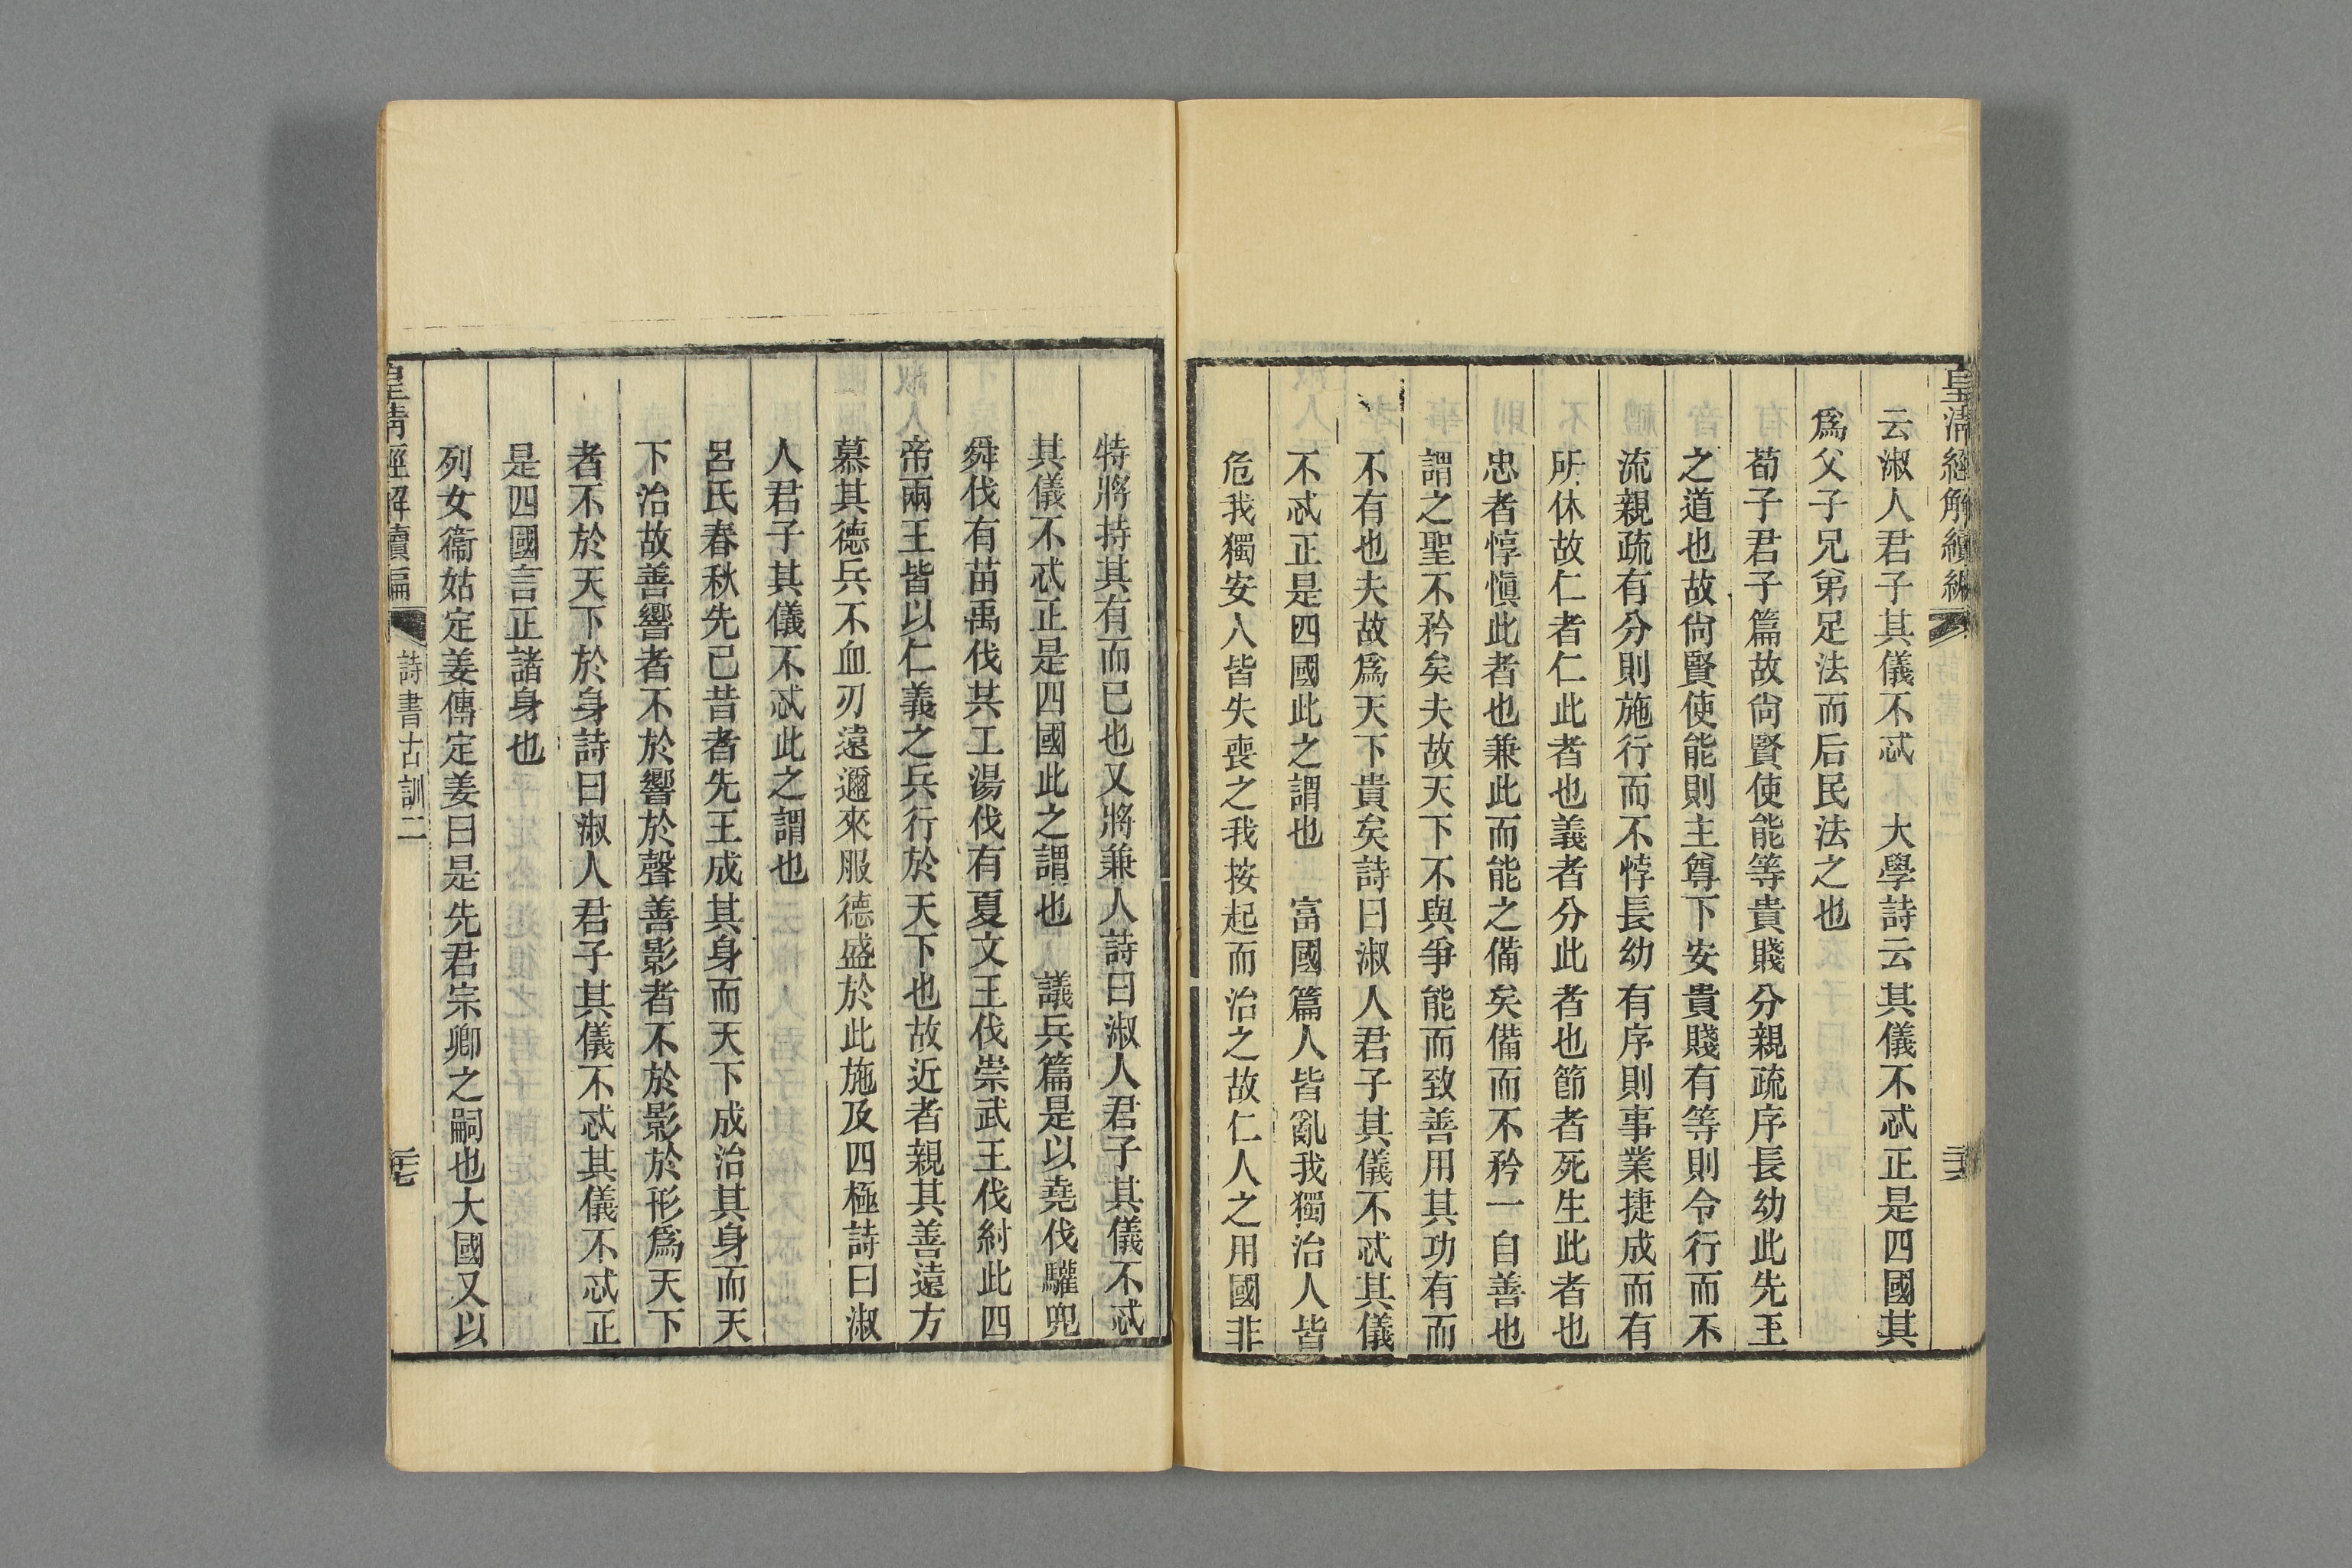 皇清經解續編
三六
云淑人君子其儀不忒　大學詩云其儀不忒正是四國其
爲父子兄弟足法而后民法之也
荀子君子篇故尙賢使能等貴賤分親疏序長幼此先王
之道也故尙賢使能則主尊下安貴賤有等則令行而不
流親疏有分則施行而不悖長幼有序則事業捷成而有
所休故仁者仁此者也義者分此者也節者死生此者也
忠者惇愼此者也兼此而能之備矣備而不矜一自善也
謂之聖不矜矣夫故天下不與爭能而致善用其功有而
不有也夫故爲天下貴矣詩曰淑人君子其儀不忒其儀
不忒正是四國此之謂也　富國篇人皆亂我獨治人皆
危我獨安人皆失喪之我按起而治之故仁人之用國非
特將持其有而已也又將兼人詩曰淑人君子其儀不忒
其儀不忒正是四國此之謂也　議兵篇是以堯伐驩兜
舜伐有苗禹伐共工湯伐有夏文王伐崇武王伐紂此四
帝兩王皆以仁義之兵行於天下也故近者親其善遠方
慕其德兵不血刃遠邇來服德盛於此施及四極詩曰淑
人君子其儀不忒此之謂也
呂氏春秋先已昔者先王成其身而天下成治其身而天
下治故善響者不於響於聲善影者不於影於形爲天下
者不於天下於身詩曰淑人君子其儀不忒其儀不忒正
是四國言正諸身也
列女衞姑定姜傳定姜曰是先君宗卿之嗣也大國又以
皇清經解續編
詩書古訓二
三七